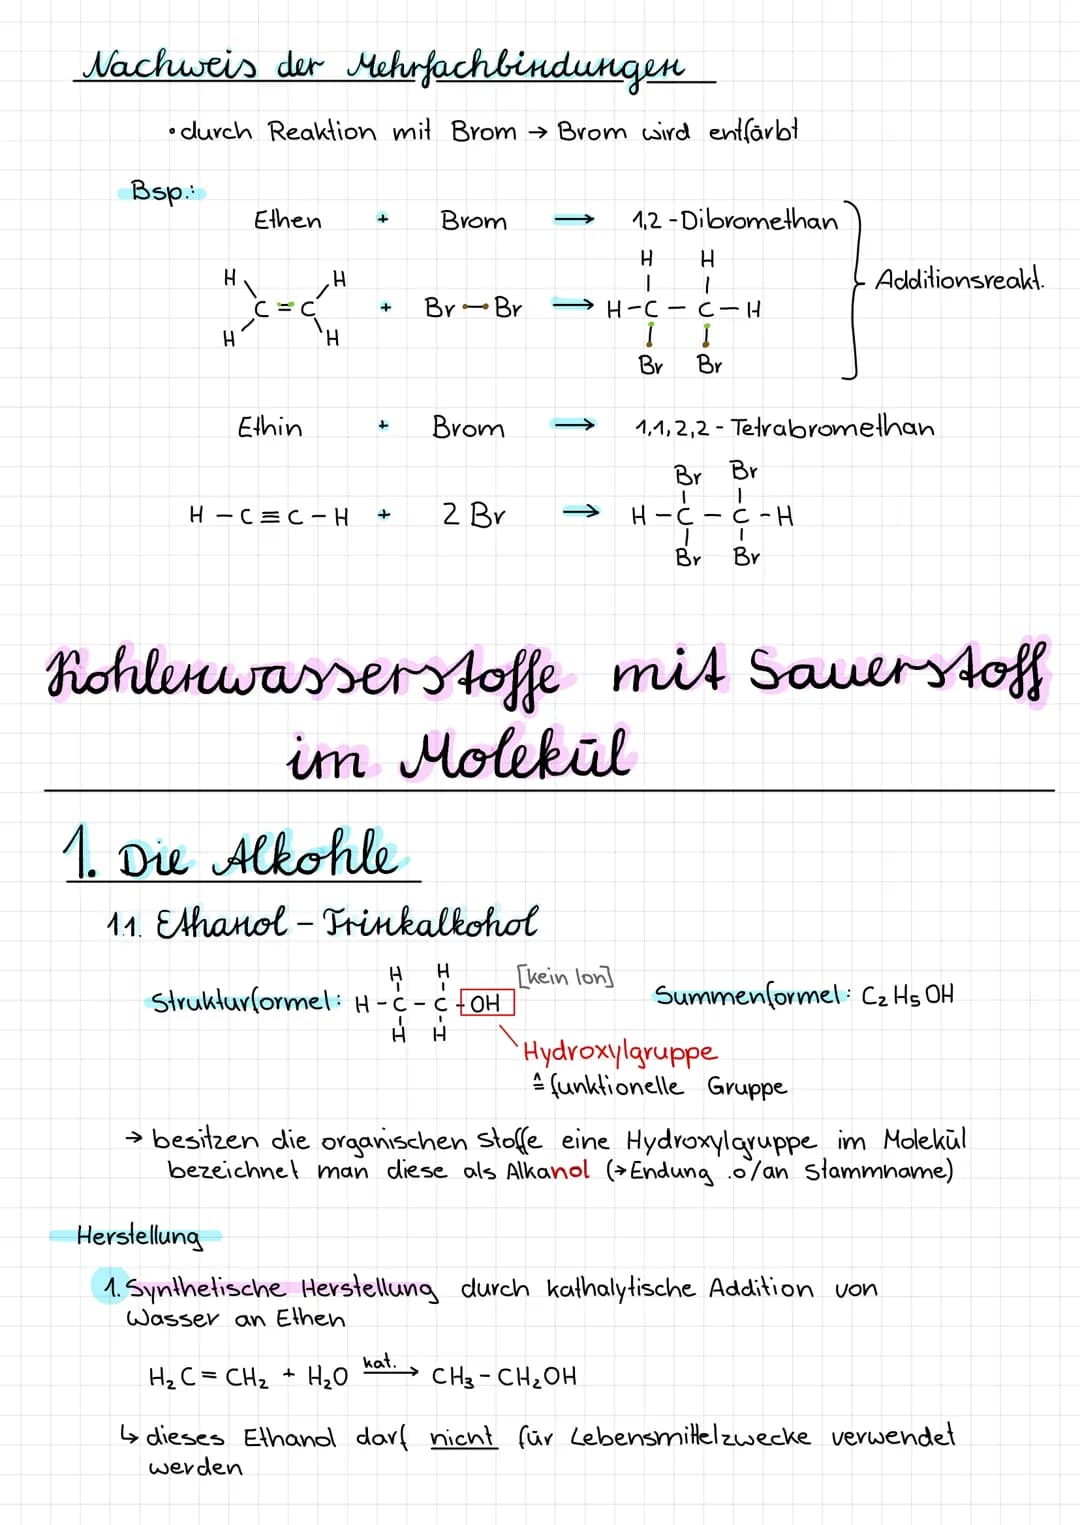 Nachweis der Mehrfachbindungen
• durch Reaktion mit Brom → Brom wird entfärbt
Bsp.:
Ethen + Brom → 1,2 - Dibromethan
H H
H H
C = C + Br — Br → H - C - C - H Additionsreakt.
H H
Br Br
Ethin + Brom → 1,1,2,2 - Tetrabromethan
Br Br
H - C ≡ C - H + 2 Br → H - C - C - H
Br Br
Kohlenwasserstoffe mit Sauerstoff
im Molekül
1. Die Alkohle
1.1. Ethanol - Trinkalkohol
H H [kein Ion]
Strukturformel: H - C - C - OH Summenformel: C₂H₅OH
H H
Hydroxylgruppe
≙ funktionelle Gruppe
→ besitzen die organischen Stoffe eine Hydroxylgruppe im Molekül
bezeichnet man diese als Alkanol (→ Endung .ol an Stammname)
Herstellung
1. Synthetische Herstellung durch kathalytische Addition von
Wasser an Ethen
H₂C = CH₂ + H₂O kat. → CH₃ - CH₂OH
↳ dieses Ethanol darf nicht für Lebensmittelzwecke verwendet
werden